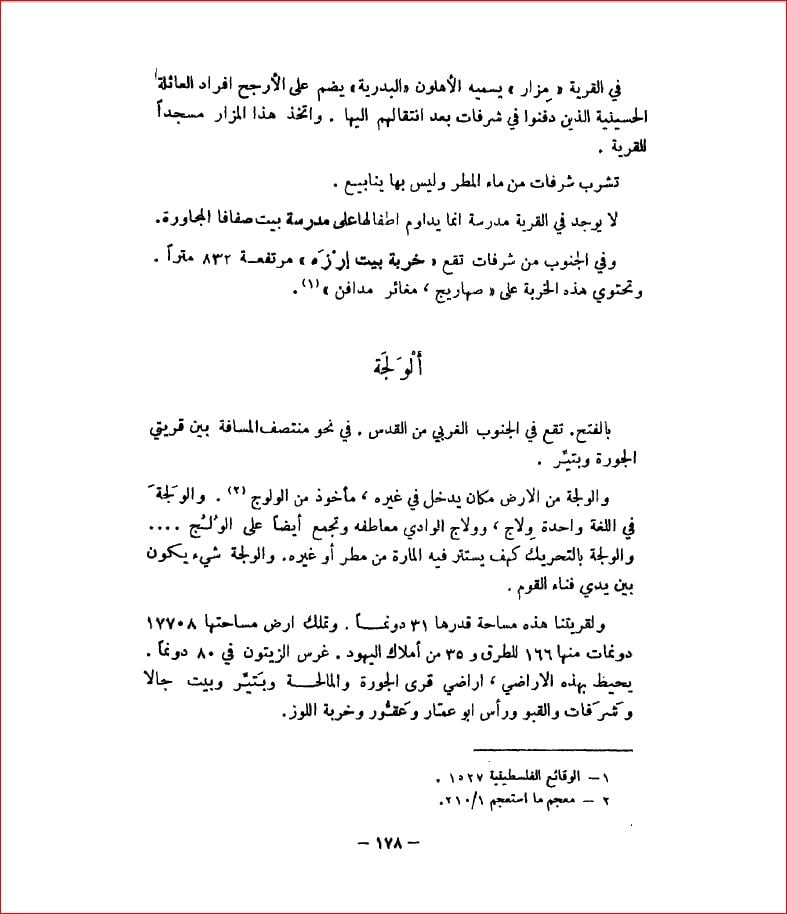 في القرية « مِزار » يسميه الأهلون «البدرية» يضم على الأرجح افراد العائلة
الحسينية الذين دفنوا في شرفات بعد انتقالهم اليها . واتخذ هذا المزار مسجداً
للقرية .
تشرب شرفات من ماء المطر وليس بها ينابيع .
لا يوجد في القرية مدرسة انما يداوم اطفالها على مدرسة بيت صفافا المجاورة.
وفي الجنوب من شرفات تقع « خربة بيت إرْزَه » مرتفعة ٨٣٢ متراً .
وتحتوي هذه الخربة على « صهاريج ، مغائر مدافن » (١).
ألْوَلجَة
بالفتح. تقع في الجنوب الغربي من القدس . في نحو منتصف المسافة بين قريتي
الجورة وبتيِّر .
والولجة من الارض مكان يدخل في غيره ، مأخوذ من الولوج (٢) . والوَلجَة
في اللغة واحدة وِلاج ، وولاج الوادي معاطفه وتجمع أيضاً على الوُلُج ....
والولجة بالتحريك كهف يستتر فيه المارة من مطر أو غيره. والولجة شيء يكون
بين يدي فناء القوم .
ولقريتنا هذه مساحة قدرها ٣١ دونمــاً . وتملك ارض مساحتها ١٧٧٠٨
دونمات منها ١٦٦ للطرق و ٣٥ من أملاك اليهود. غرس الزيتون في ٨٠ دونماً .
يحيط بهذه الاراضي ، اراضي قرى الجورة والمالحــة وبَتيِّر وبيت جالا
وشرَفات والقبو ورأس ابو عمّار وعَقُّور وخربة اللوز.
١ – الوقائع الفلسطينية ١٥٢٧ .
٢ – معجم ما استعجم ٢١٠/١.
– ١٧٨ –